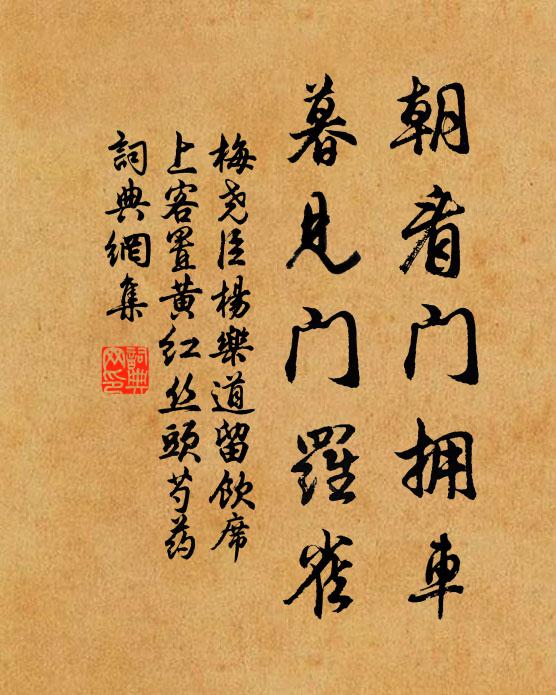 朝看门拥車
暮見门羅雀
梅尧臣楊樂道留飲席
上客置黄红丝頭芍药
詞典網集
詞典網印